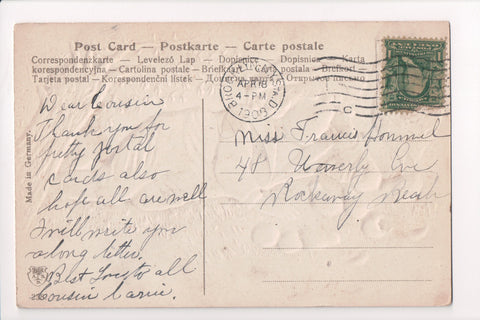 Post Card — Postkarte — Carte postale
Correspondenzkarte — Levelező Lap — Dopisnice — Dopisnica — Karta
korespondencyjna — Cartolina postale — Briefkaart — Brefkort —
Tarjeta postal — Korespondenční lístek — Дописна карта — Открытое письмо
APR 18
4-PM
1907
C
Made in Germany.
Dear Cousin
Thank you for
pretty postal
cards also
hope all are well
I will write you
a long letter.
Best Love to all
Cousin Carrie.
Miss Francis
48 Waverly Ave
Rockaway Beach